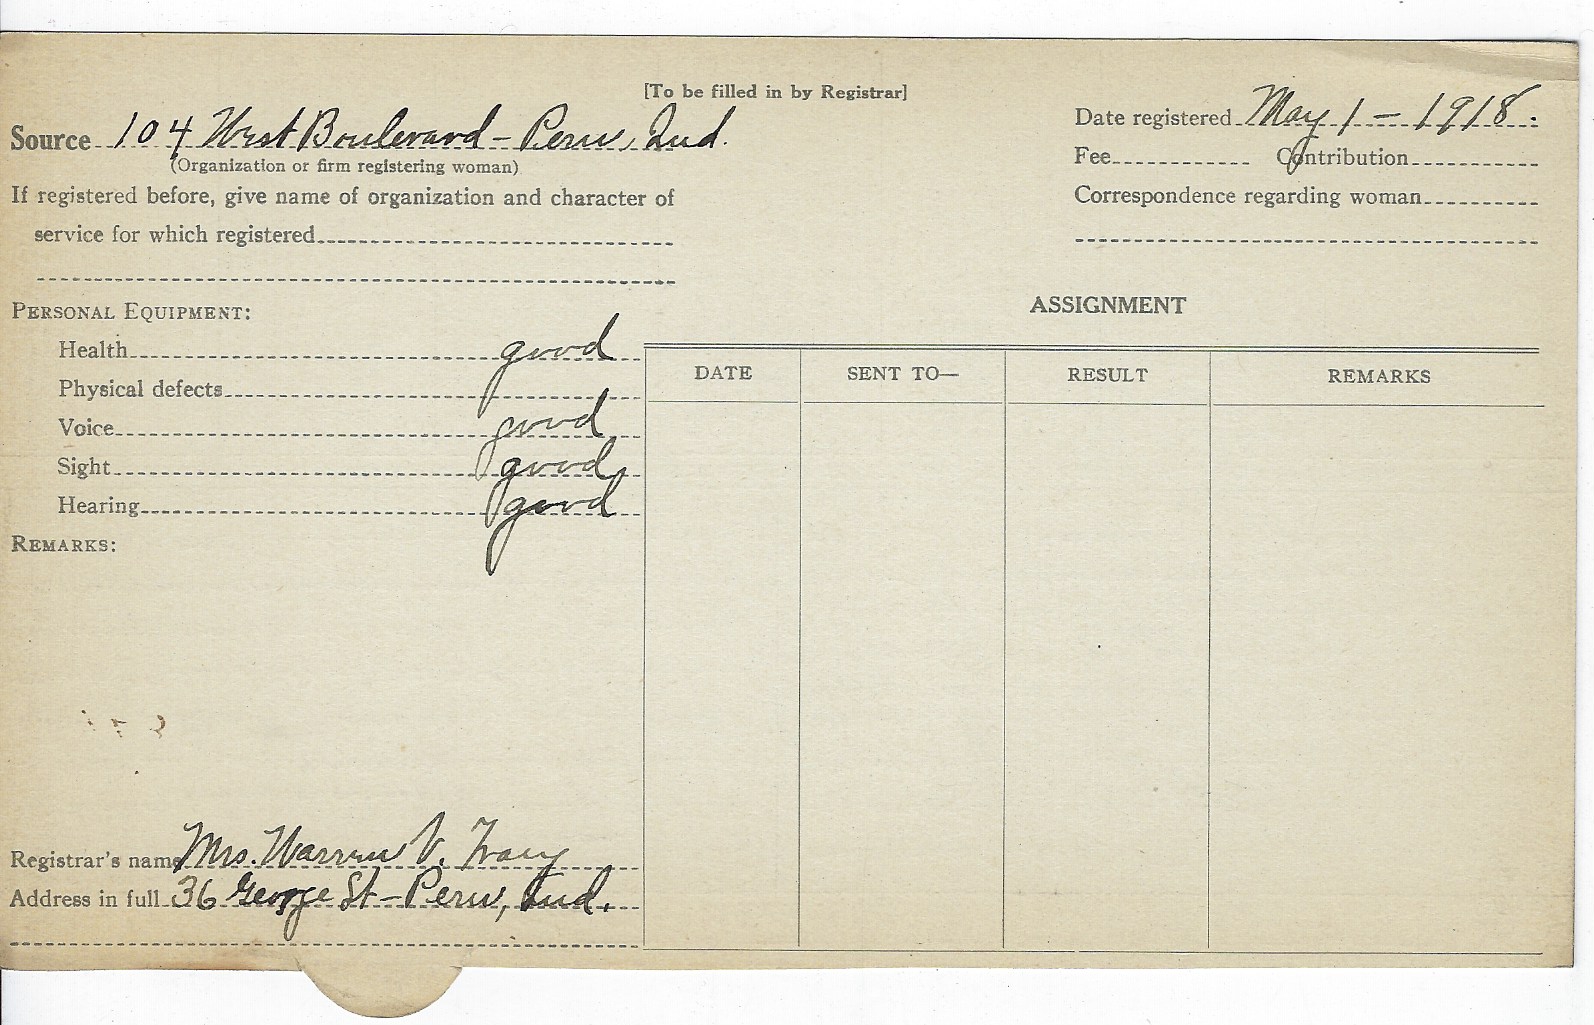 [To be filled in by Registrar]
Source 104 West Boulevard - Peru, Ind.
(Organization or firm registering woman)
Date registered May 1 - 1918.
Fee Contribution
If registered before, give name of organization and character of
service for which registered
Correspondence regarding woman
PERSONAL EQUIPMENT:
Health good
Physical defects
Voice good
Sight good
Hearing good
REMARKS:
ASSIGNMENT
DATE SENT TO— RESULT REMARKS
Registrar's name Mrs. Warren V. Tracy
Address in full 36 George St - Peru, Ind.